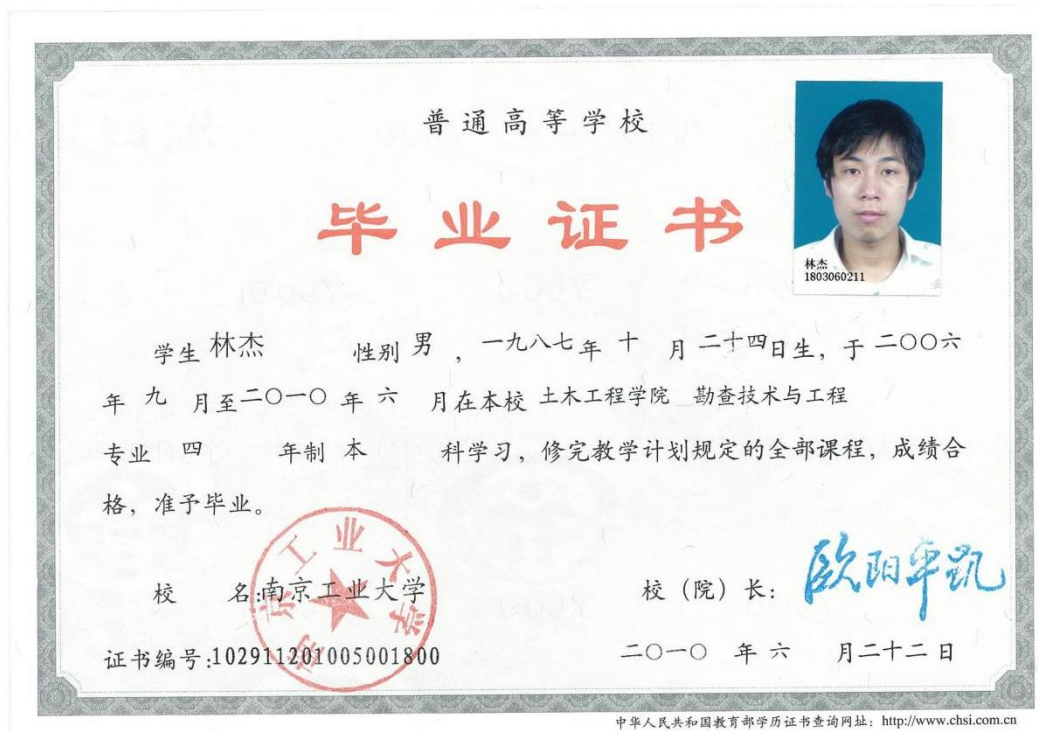 普通高等学校
毕业证书
林杰
1803060211
学生 林杰 性别 男 ，一九八七年 十 月二十四日生，于二〇〇六
年 九 月至二〇一〇 年 六 月在本校 土木工程学院 勘查技术与工程
专业 四 年制 本 科学习，修完教学计划规定的全部课程，成绩合
格，准予毕业。
南京工业大学
校 名:南京工业大学
校（院）长：欧阳平凯
证书编号:102911201005001800
二〇一〇 年 六 月二十二日
中华人民共和国教育部学历证书查询网址：http://www.chsi.com.cn